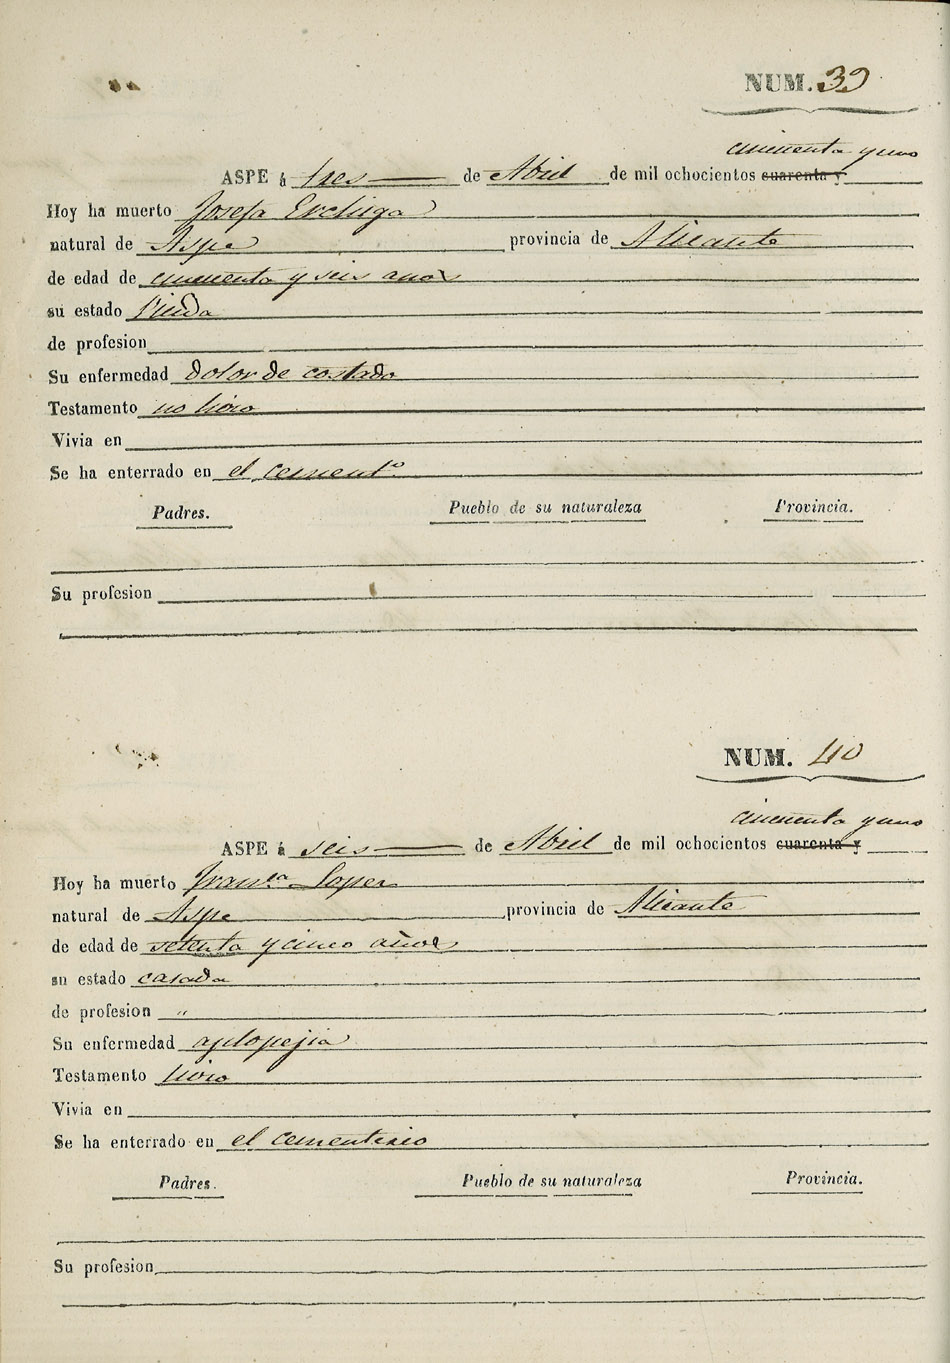 NUM. 39
cincuenta y uno
ASPE á tres de Abril de mil ochocientos cuarenta y
Hoy ha muerto Josefa
natural de Aspe provincia de Alicante
de edad de cincuenta y seis años
su estado Viuda
de profesion
Su enfermedad dolor de costado
Testamento no hizo
Vivia en
Se ha enterrado en el cementº
Padres. Pueblo de su naturaleza Provincia.
Su profesion
NUM. 40
cincuenta y uno
ASPE á seis de Abril de mil ochocientos cuarenta y
Hoy ha muerto Franca Lopez
natural de Aspe provincia de Alicante
de edad de setenta y cinco años
su estado casada
de profesion "
Su enfermedad aplopejia
Testamento hizo
Vivia en
Se ha enterrado en el cementerio
Padres. Pueblo de su naturaleza Provincia.
Su profesion